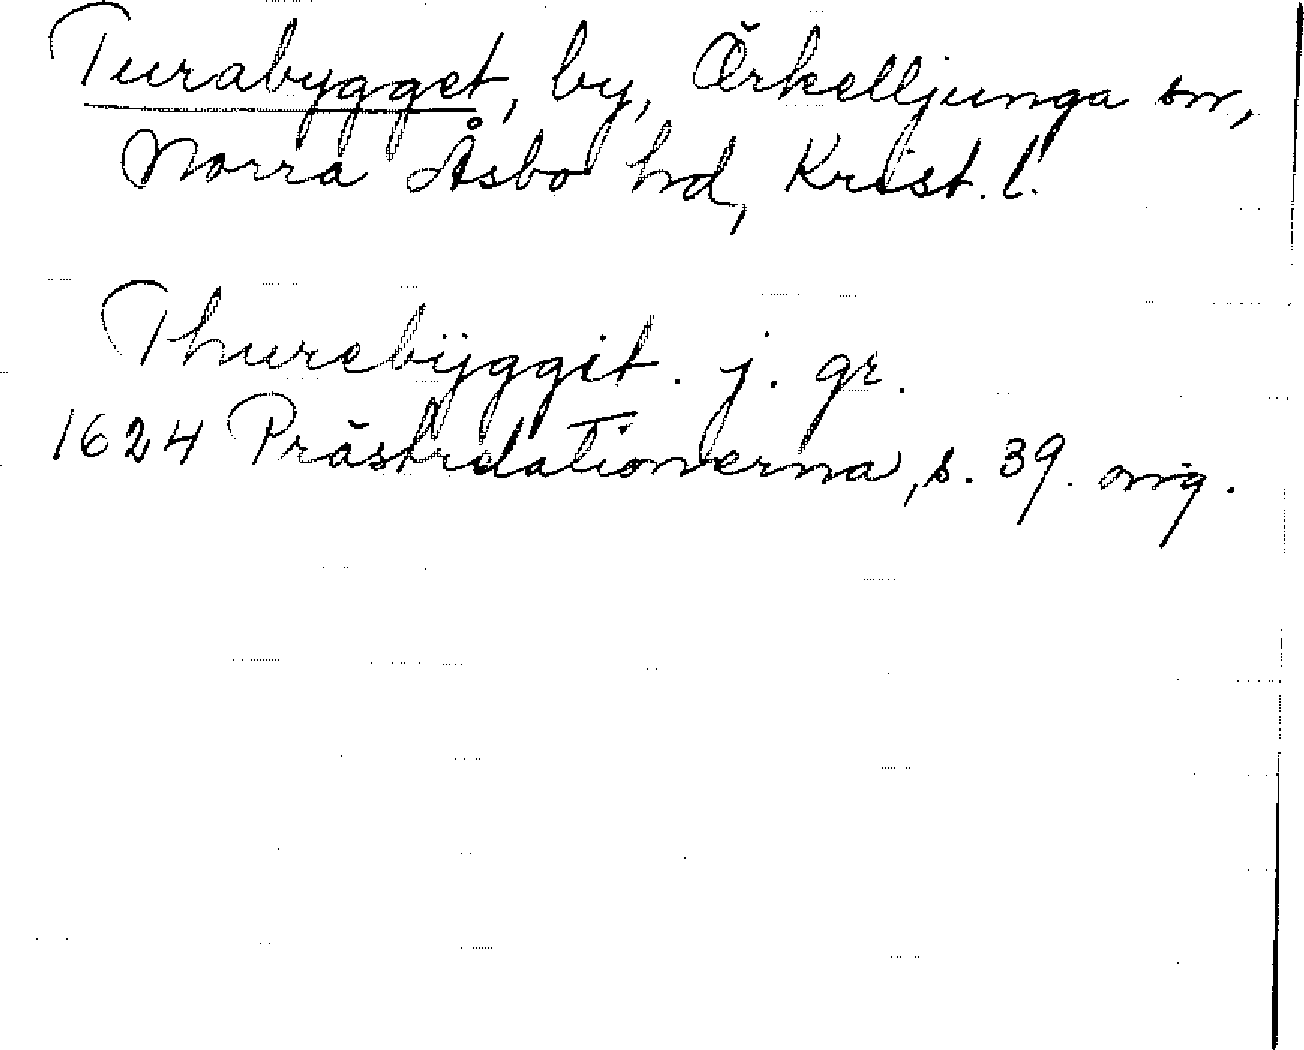 Turabygget, by, Örkelljunga sn,
Norra Åsbo hd, Krist. l.
Thurebÿggit. j. gr.
1624 Prästrelationerna, s. 39. orig.